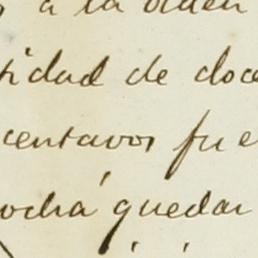 a la orden
tidad de doce
centavos fue
ocha quedar